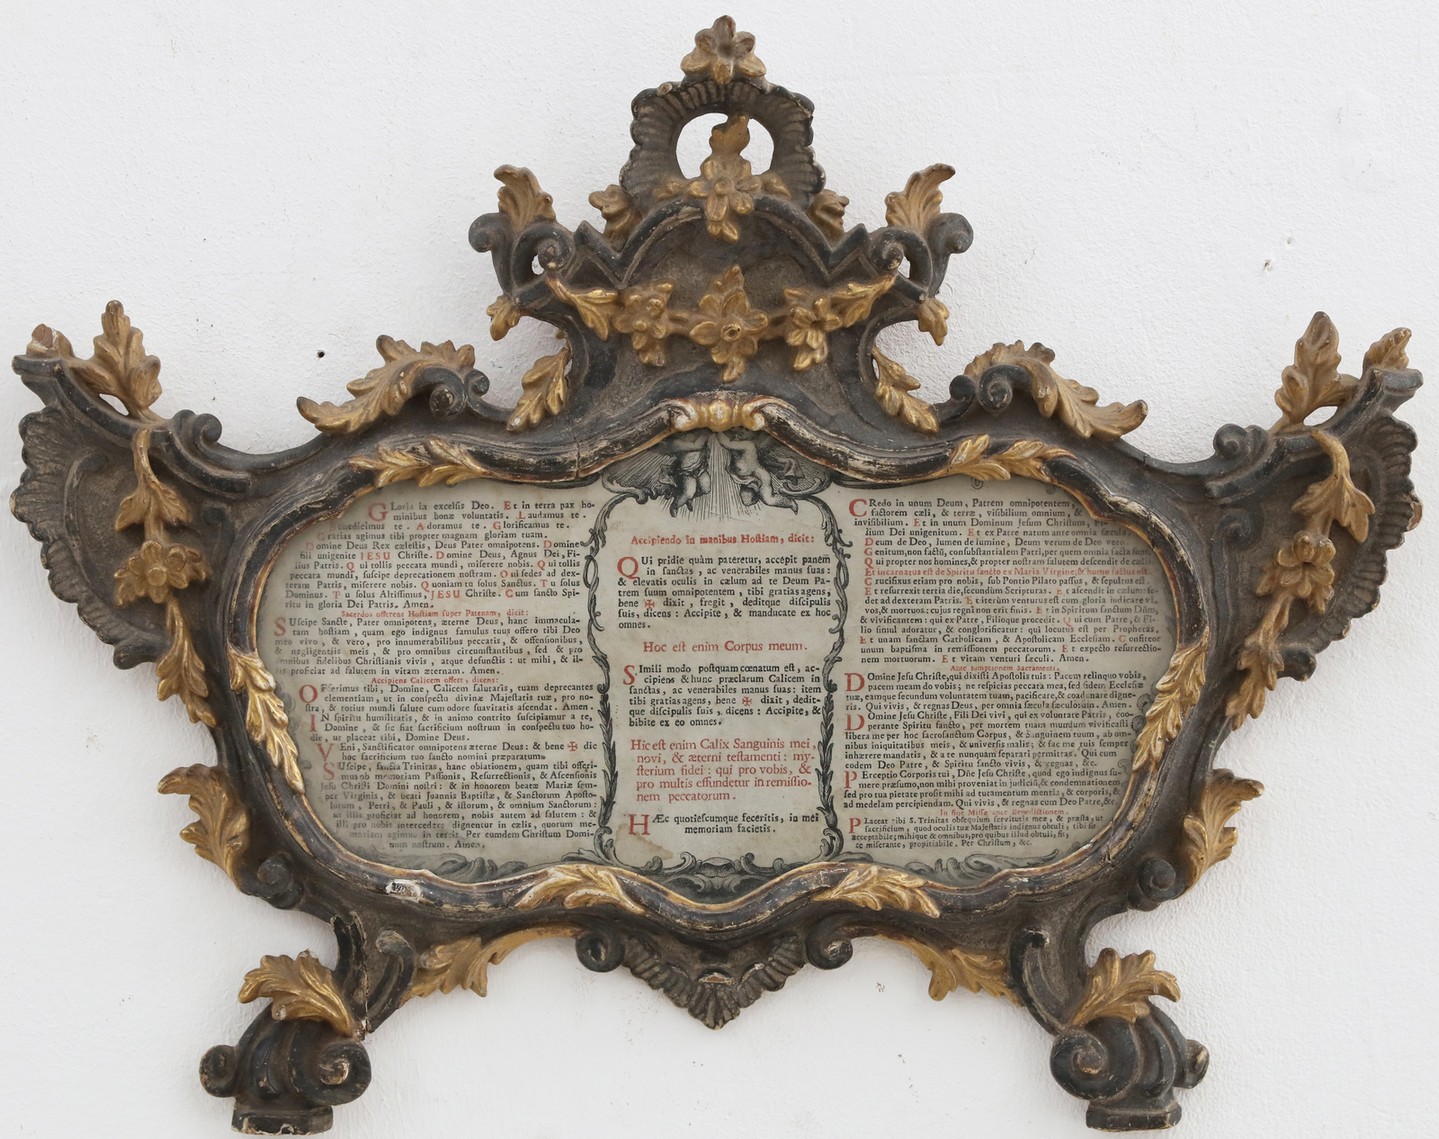 Gloria in excelsis Deo. Et in terra pax ho-
minibus bonæ voluntatis. Laudamus te.
Benedicimus te. Adoramus te. Glorificamus te.
Gratias agimus tibi propter magnam gloriam tuam.
Domine Deus Rex cælestis, Deus Pater omnipotens. Domine
fili unigenite JESU Christe. Domine Deus, Agnus Dei, Fi-
lius Patris. Qui tollis peccata mundi, miserere nobis. Qui tollis
peccata mundi, suscipe deprecationem nostram. Qui sedes ad dex-
teram Patris, miserere nobis. Quoniam tu solus Sanctus. Tu solus
Dominus. Tu solus Altissimus, JESU Christe. Cum sancto Spi-
ritu in gloria Dei Patris. Amen.
Sacerdos offerens Hostiam super Patenam, dicit:
SUscipe Sancte, Pater omnipotens, æterne Deus, hanc immacula-
tam hostiam, quam ego indignus famulus tuus offero tibi Deo
meo vivo, & vero, pro innumerabilibus peccatis, & offensionibus,
& negligentiis meis, & pro omnibus circumstantibus, sed & pro
omnibus fidelibus Christianis vivis, atque defunctis: ut mihi, & il-
lis proficiat ad salutem in vitam æternam. Amen.
Accipiens Calicem offert, dicens:
OFferimus tibi, Domine, Calicem salutaris, tuam deprecantes
clementiam, ut in conspectu divinæ Majestatis tuæ, pro no-
stra, & totius mundi salute cum odore suavitatis ascendat. Amen.
IN spiritu humilitatis, & in animo contrito suscipiamur a te,
Domine, & sic fiat sacrificium nostrum in conspectu tuo ho-
die, ut placeat tibi, Domine Deus.
VEni, Sanctificator omnipotens æterne Deus: & bene ✠ dic
hoc sacrificium tuo sancto nomini præparatum.
SUscipe, sancta Trinitas, hanc oblationem, quam tibi offeri-
mus ob memoriam Passionis, Resurrectionis, & Ascensionis
Jesu Christi Domini nostri: & in honorem beatæ Mariæ sem-
per Virginis, & beati Joannis Baptistæ, & Sanctorum Aposto-
lorum, Petri, & Pauli, & istorum, & omnium Sanctorum:
ut illis proficiat ad honorem, nobis autem ad salutem: &
illi pro nobis intercedere dignentur in cælis, quorum me-
moriam agimus in terris. Per eumdem Christum Domi-
num nostrum. Amen.
Accipiendo in manibus Hostiam, dicit:
QUi pridie quàm pateretur, accepit panem
in sanctas, ac venerabiles manus suas:
& elevatis oculis in cælum ad te Deum Pa-
trem suum omnipotentem, tibi gratias agens,
bene ✠ dixit, fregit, deditque discipulis
suis, dicens: Accipite, & manducate ex hoc
omnes.
Hoc est enim Corpus meum.
SImili modo postquam cœnatum est, ac-
cipiens & hunc præclarum Calicem in
sanctas, ac venerabiles manus suas: item
tibi gratias agens, bene ✠ dixit, dedit-
que discipulis suis, dicens: Accipite, &
bibite ex eo omnes.
Hic est enim Calix Sanguinis mei,
novi, & æterni testamenti: my-
sterium fidei: qui pro vobis, &
pro multis effundetur in remissio-
nem peccatorum.
HÆc quotiescumque feceritis, in mei
memoriam facietis.
CRedo in unum Deum, Patrem omnipotentem,
factorem cæli, & terræ, visibilium omnium, &
invisibilium. Et in unum Dominum Jesum Christum, Fi-
lium Dei unigenitum. Et ex Patre natum ante omnia sæcula.
Deum de Deo, lumen de lumine, Deum verum de Deo vero.
Genitum, non factũ, consubstantialem Patri, per quem omnia facta sunt.
Qui propter nos homines, & propter nostram salutem descendit de cælis.
Et incarnatus est de Spiritu sancto ex Maria Virgine; & homo factus est.
Crucifixus etiam pro nobis, sub Pontio Pilato passus, & sepultus est.
Et resurrexit tertia die, secundùm Scripturas. Et ascendit in cælum: se-
det ad dexteram Patris. Et iterùm venturus est cum gloria judicare vi-
vos, & mortuos: cujus regni non erit finis. Et in Spiritum Sanctum Dñm,
& vivificantem: qui ex Patre, Filioque procedit. Qui cum Patre, & Fi-
lio simul adoratur, & conglorificatur: qui locutus est per Prophetas.
Et unam sanctam Catholicam, & Apostolicam Ecclesiam. Confiteor
unum baptisma in remissionem peccatorum. Et expecto resurrectio-
nem mortuorum. Et vitam venturi sæculi. Amen.
Ante sumptionem Sacramenti.
DOmine Jesu Christe, qui dixisti Apostolis tuis: Pacem relinquo vobis,
pacem meam do vobis; ne respicias peccata mea, sed fidem Ecclesiæ
tuæ, eamque secundum voluntatem tuam, pacificare, & coadunare digne-
ris. Qui vivis, & regnas Deus, per omnia sæcula sæculorum. Amen.
DOmine Jesu Christe, Fili Dei vivi, qui ex voluntate Patris, coo-
perante Spiritu sancto, per mortem tuam mundum vivificasti
libera me per hoc sacrosanctum Corpus, & Sanguinem tuum, ab om-
nibus iniquitatibus meis, & universis malis; & fac me tuis semper
inhærere mandatis, & a te nunquam separari permittas. Qui cum
eodem Deo Patre, & Spiritu sancto vivis, & regnas, &c.
PErceptio Corporis tui, Dñe Jesu Christe, quod ego indignus su-
mere præsumo, non mihi proveniat in judiciũ, & condemnationem,
sed pro tua pietate prosit mihi ad tutamentum mentis, & corporis, &
ad medelam percipiendam. Qui vivis, & regnas cum Deo Patre, &c.
In fine Missæ ante Benedictionem.
PLaceat tibi S. Trinitas obsequium servitutis meæ, & præsta, ut
sacrificium, quod oculis tuæ Majestatis indignus obtuli, tibi sit
acceptabile; mihique & omnibus, pro quibus illud obtuli, sit,
te miserante, propitiabile. Per Christum, &c.